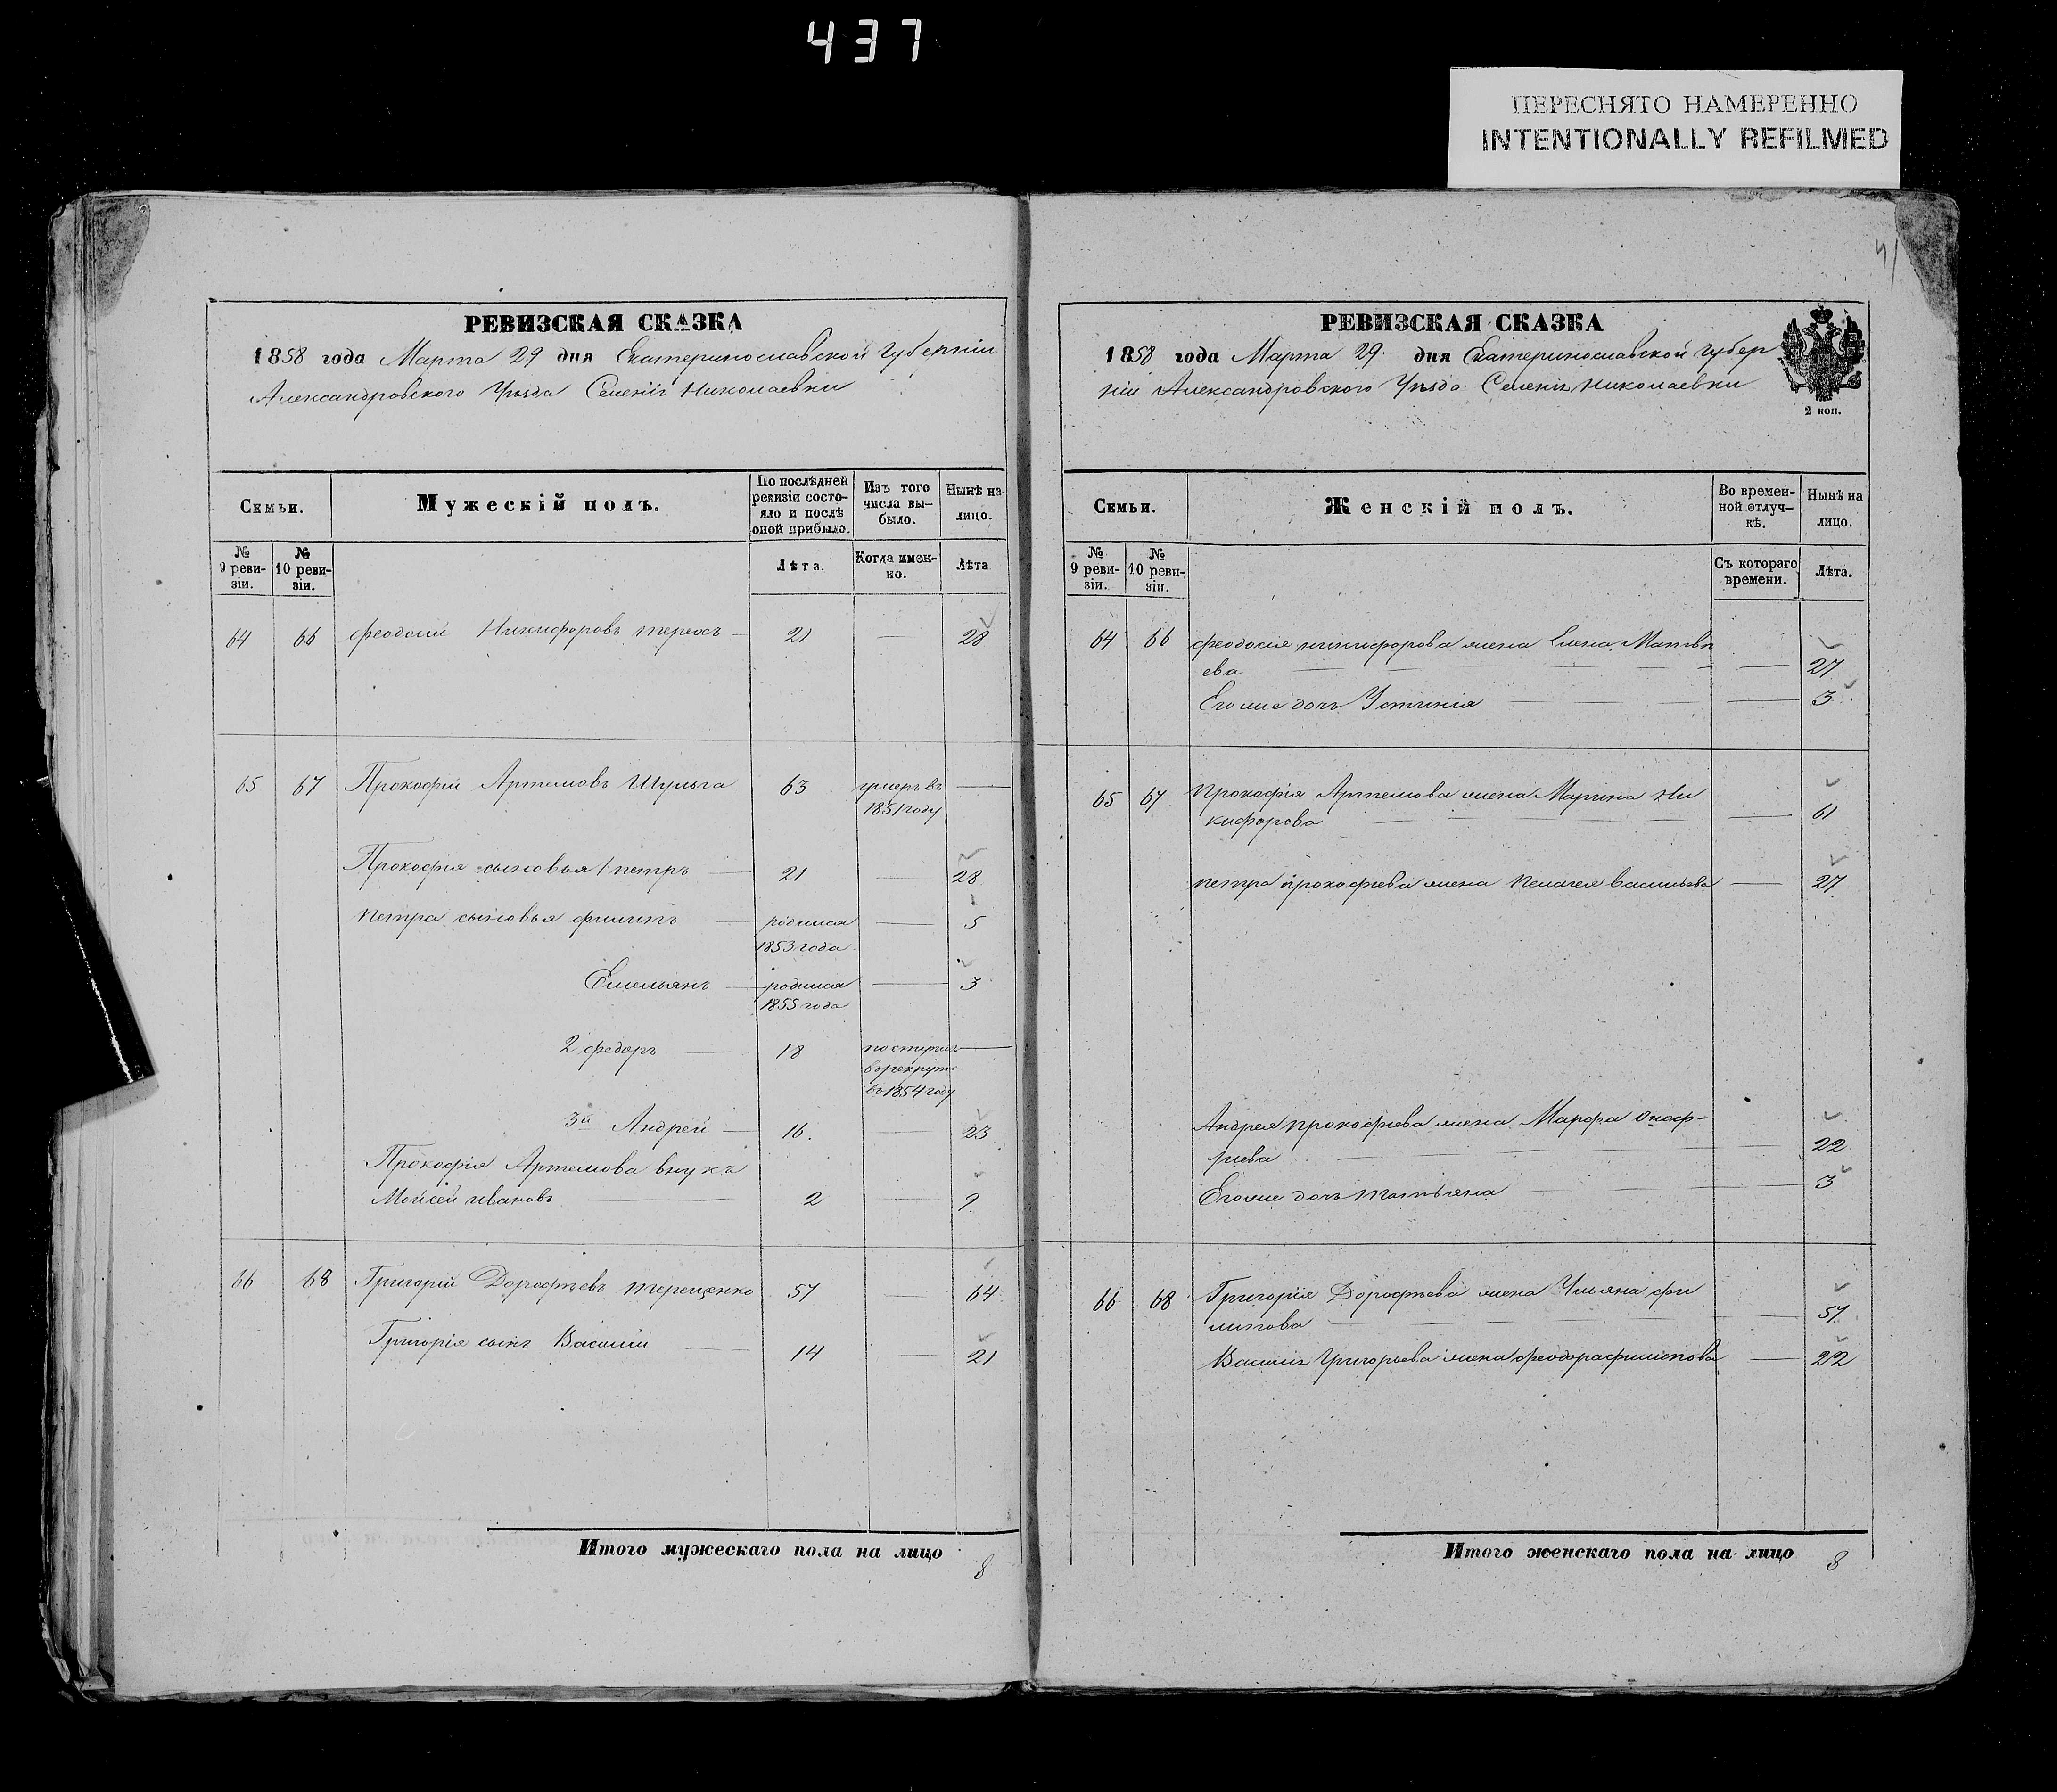 437
ПЕРЕСНЯТО НАМЕРЕННО
INTENTIONALLY REFILMED
РЕВИЗСКАЯ СКАЗКА
1858 года Марта 29 дня Екатеринославской Губерніи
Александровского Уѣзда Селенія Николаевки
Семьи.
Мужескій полъ.
По послѣдней ревизіи состояло и послѣ оной прибыло.
Изъ того числа выбыло.
Нынѣ на лицо.
№ 9 ревизіи.
№ 10 ревизіи.
Лѣта.
Когда именно.
Лѣта.
64 66 Феодосій Никифоровъ 21 — 28
65 67 Прокофій Артемовъ Шульга 63 умеръ въ —
1851 году
Прокофія сыновья 1 петръ — 21 — 28
петра сыновья филипъ — родился — 5
1853 года
Емельянъ — родился — 3
1855 года
2 федоръ — 18 —
въ 1854 году
3й Андрей — 16. 23
Прокофія Артемова внукъ
Мойсей ивановъ — 2 — 9
66 68 Григорій Дорофѣевъ терещенко 57 — 64
Григорія сынъ Василій — 14 — 21
Итого мужескаго пола на лицо 8
41
РЕВИЗСКАЯ СКАЗКА
1858 года Марта 29 дня Екатеринославской Губер
ніи Александровского Уѣзда Селенія Николаевки
2 коп.
Семьи.
Женскій полъ.
Во временной отлучкѣ.
Нынѣ на лицо.
№ 9 ревизіи.
№ 10 ревизіи.
Съ котораго времени.
Лѣта.
64 66 феодосія никифорова жена Елена Матвѣ
ева — 27
Его же дочь Устинія — 3
65 67 Прокофія Артемова жена Марина Ни
кифорова — 61
петра прокофіева жена пелагея васильева — 27
Андрея прокофіева жена Марфа Оноф-
ріева — 22
Его же дочь татьяна — 3
66 68 Григорія Дорофѣева жена Ульяна фи
липова — 57
Василія Григорьева жена феодора филипова — 22
Итого женскаго пола на лицо 8